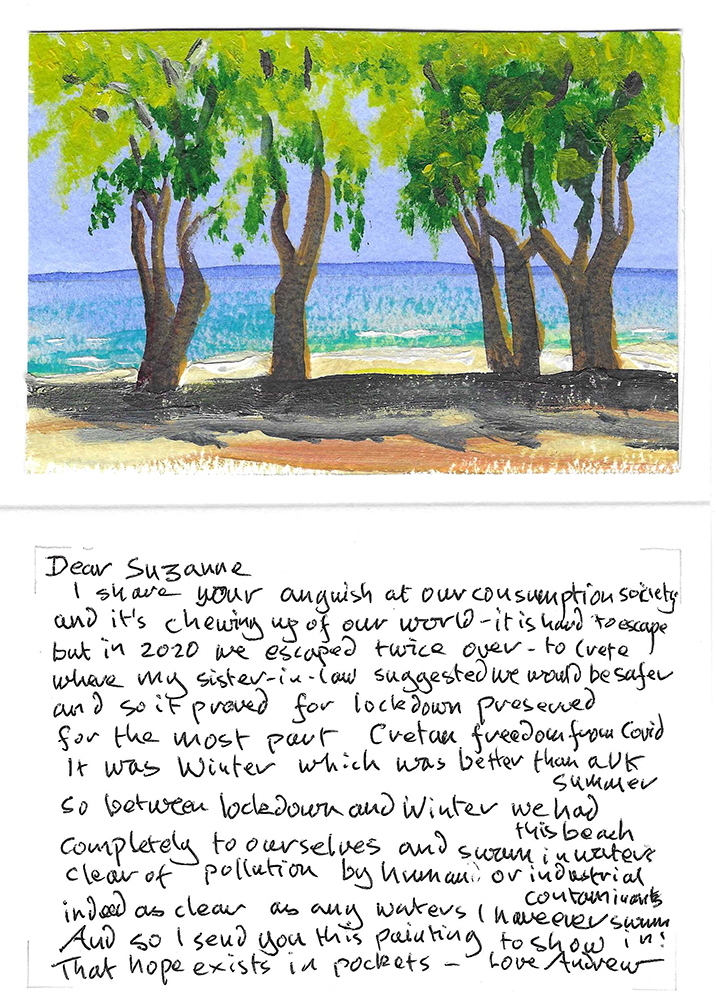 Dear Suzanne
I share your anguish at our consumption society
and it's chewing up of our world - it is hard to escape
but in 2020 we escaped twice over - to Crete
where my sister-in-law suggested we would be safer
and so it proved for lockdown preserved
for the most part Cretan freedom from Covid
It was Winter which was better than a UK
summer
so between lockdown and Winter we had
this beach
completely to ourselves and swam in waters
clear of pollution by humans or industrial
contaminants
indeed as clear as any waters I have ever swum
in!
And so I send you this painting to show
That hope exists in pockets - Love Andrew